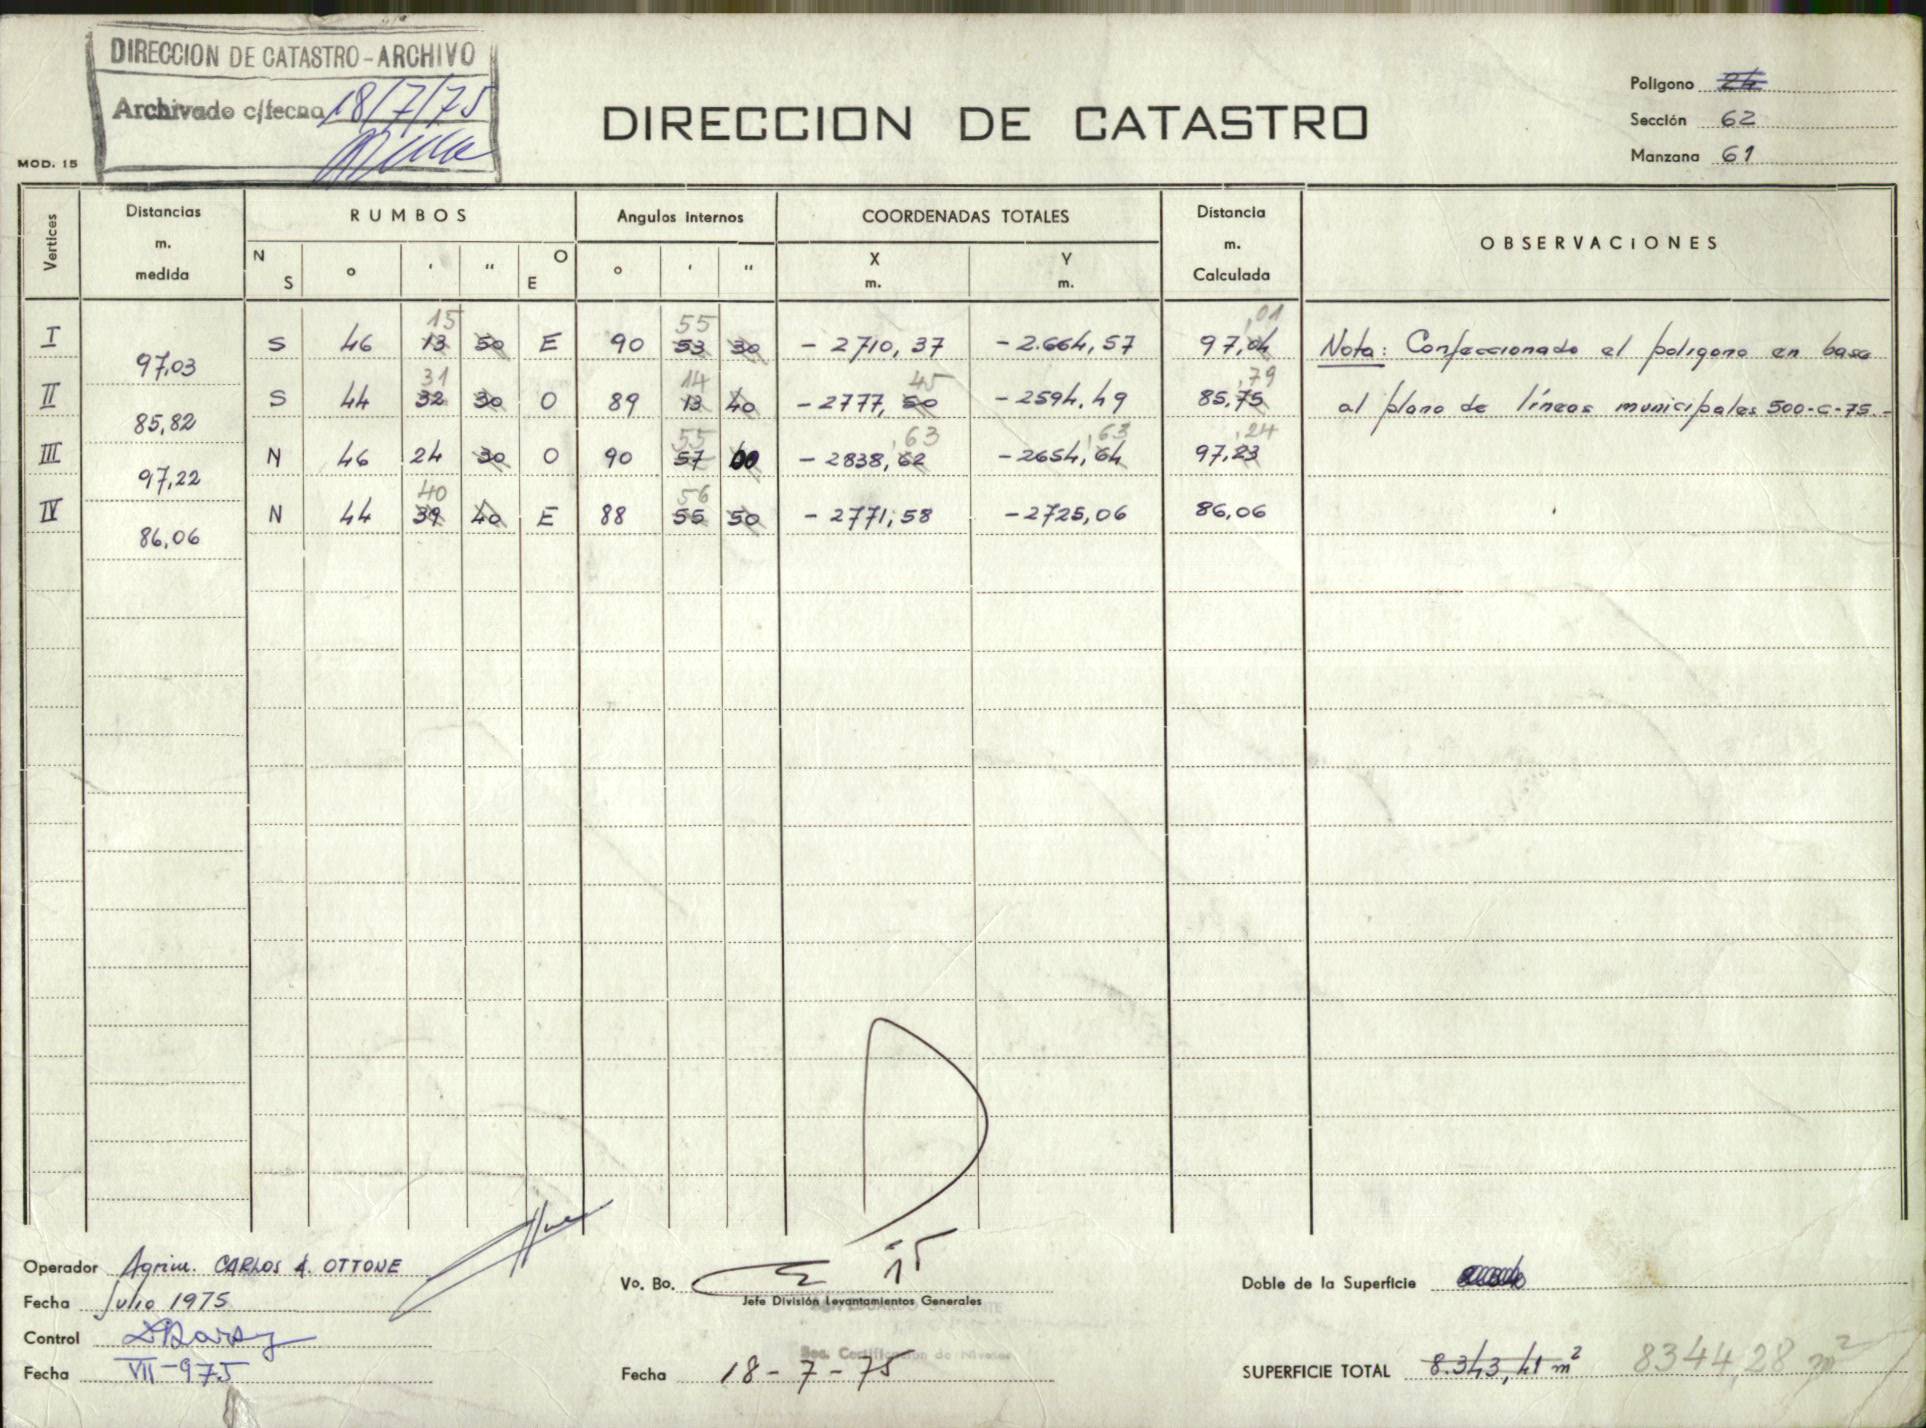 DIRECCION DE CATASTRO - ARCHIVO
Archivado c/fecha 18/7/75
MOD. 15
DIRECCION DE CATASTRO
Poligono 24
Sección 62
Manzana 61
Vertices
Distancias m. medida
RUMBOS
Angulos Internos
COORDENADAS TOTALES
Distancia m. Calculada
OBSERVACIONES
N S ° ' " O E ° ' " X m. Y m.
15 55 ,01
I S 46 13 50 E 90 53 30 - 2710,37 - 2.664,57 97,04 Nota: Confeccionado el poligono en base
97,03
31 14 45 ,79
II S 44 32 30 O 89 13 40 - 2777,50 - 2594,49 85,75 al plano de líneas municipales 500-C-75.-
85,82
55 ,63 ,63 ,24
III N 46 24 30 O 90 57 00 - 2838,62 - 2654,64 97,23
97,22
40 56
IV N 44 39 40 E 88 55 50 - 2771,58 - 2725,06 86,06
86,06
Operador Agrim. CARLOS A. OTTONE
Fecha Julio 1975
Control
Fecha VII-975
Vo. Bo.
Jefe División Levantamientos Generales
Sec. Certificación de Niveles
Fecha 18-7-75
Doble de la Superficie
SUPERFICIE TOTAL 8.343,41 m² 8344,28 m²